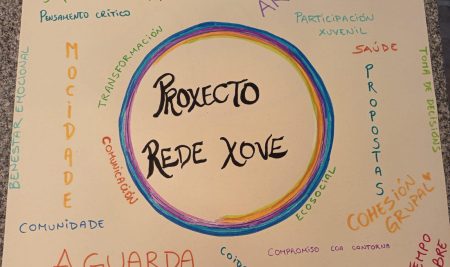 PENSAMENTO CRÍTICO
PARTICIPACIÓN
XUVENIL
TRANSFORMACIÓN
SAÚDE
BENESTAR EMOCIONAL
MOCIDADE
PROXECTO
REDE XOVE
PROPOSTAS
TOMA DE DECISIÓNS
COMUNICACIÓN
ECOSOCIAL
COHESIÓN
GRUPAL
COMUNIDADE
A GUARDA
COMPROMISO COA CONTORNA